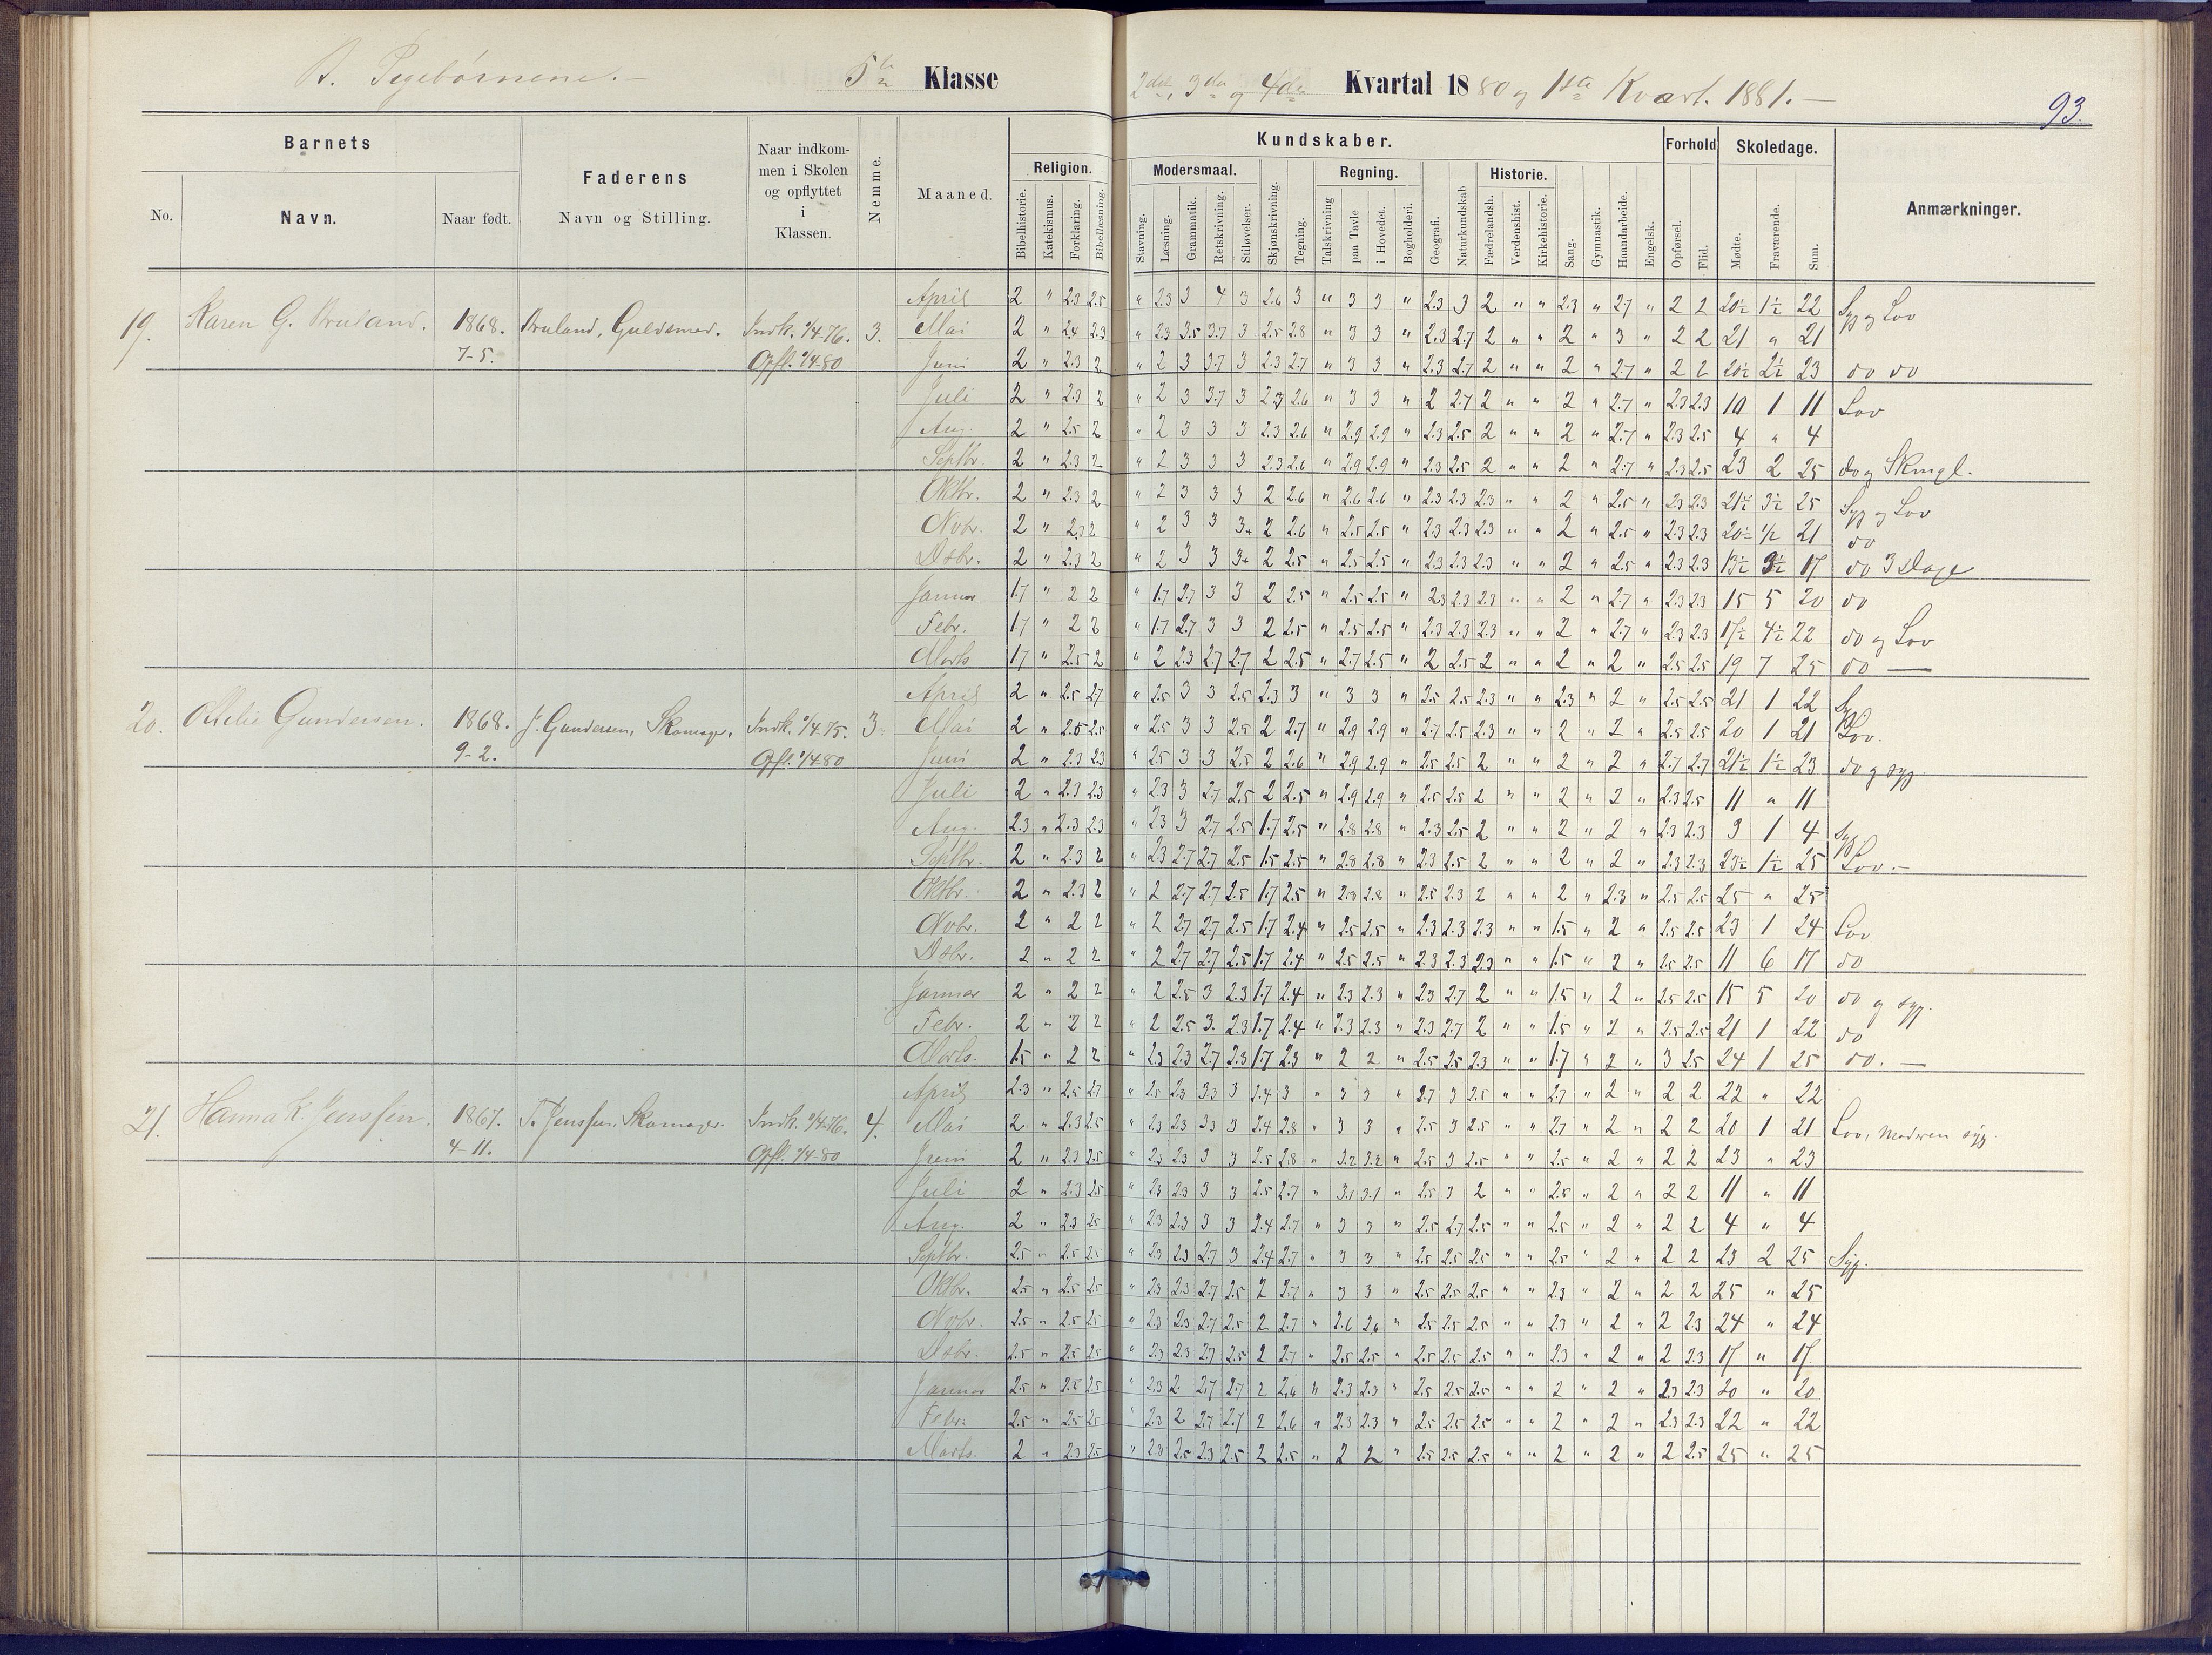 B. Pigebørnene. —
5te Klasse
2det, 3die og 4de Kvartal 1880 og 1ste Kvart. 1881. —
93.
Barnets
No.
Navn.
Naar født.
Faderens
Navn og Stilling.
Naar indkom-
men i Skolen
og opflyttet
i
Klassen.
Nemme.
Maaned.
Kundskaber.
Religion.
Bibelhistorie.
Katekismus.
Forklaring.
Bibellæsning.
Modersmaal.
Stavning.
Læsning.
Grammatik.
Retskrivning.
Stiløvelser.
Skjønskrivning.
Tegning.
Regning.
Talskrivning
paa Tavle
i Hovedet.
Bogholderi.
Geografi.
Naturkundskab
Historie.
Fædrelandsh.
Verdenshist.
Kirkehistorie.
Sang.
Gymnastik.
Haandarbeide.
Engelsk.
Forhold
Opførsel.
Flid.
Skoledage.
Mødte.
Fraværende.
Sum.
Anmærkninger.
April 2 " 2.3 2.5 " 2.3 3 4 3 2.6 3 " 3 3 " 2.3 3 2 " " 2.3 " 2.7 " 2 2 20½ 1½ 22 Syg og Lov
19. Karen G. 1868. Guldsmed. Indk. 1/4-76. 3. Mai 2 " 2.4 2.3 " 2.3 3.5 3.7 3 2.5 2.8 " 3 3 " 2.3 2.7 2 " " 2 " 3 " 2 2 21 " 21
7-5. Opfl. 1/4-80 Juni 2 " 2.3 2 " 2 3 3.7 3 2.3 2.7 " 3 3 " 2.3 2.7 2 " " 2 " 2.7 " 2 2 20½ 2½ 23 do do
Juli 2 " 2.3 2 " 2 3 3.7 3 2.3 2.6 " 3 3 " 2 2.7 2 " " 2 " 2.7 " 2.3 2.3 10 1 11 Lov
Aug. 2 " 2.5 2 " 2 3 3 3 2.3 2.6 " 2.9 2.9 " 2.3 2.5 2 " " 2 " 2.7 " 2.3 2.5 4 " 4
Septbr. 2 " 2.3 2 " 2 3 3 3 2.3 2.6 " 2.9 2.9 " 2.3 2.5 2 " " 2 " 2.7 " 2.3 2.5 23 2 25 do og
Oktbr. 2 " 2.3 2 " 2 3 3 3 2 2.6 " 2.6 2.6 " 2.3 2.3 2.3 " " 2 " 2.5 " 2.3 2.3 21½ 3½ 25 Syg og Lov
Novbr. 2 " 2.3 2 " 2 3 3 3+ 2 2.6 " 2.5 2.5 " 2.3 2.3 2.3 " " 2 " 2.5 " 2.3 2.3 20½ ½ 21 do
Dsbr. 2 " 2.3 2 " 2 3 3 3+ 2 2.5 " 2.5 2.5 " 2.3 2.3 2.3 " " 2 " 2.5 " 2.3 2.3 13½ 3½ 17 do 3 Dage
Januar 1.7 " 2 2 " 1.7 2.7 3 3 2 2.5 " 2.5 2.5 " 2.3 2.3 2.3 " " 2 " 2.7 " 2.3 2.3 15 5 20 do
Febr. 1.7 " 2 2 " 1.7 2.7 3 3 2 2.5 " 2.5 2.5 " 2.3 2.3 2.3 " " 2 " 2.7 " 2.3 2.3 17½ 4½ 22 do og Lov
Marts 1.7 " 2.5 2 " 2 2.3 2.7 2.7 2 2.5 " 2.7 2.5 " 2 2.5 2 " " 2 " 2 " 2.5 2.5 19 7 25 do —
April 2 " 2.5 2.7 " 2.5 3 3 2.5 2.3 3 " 3 3 " 2.5 2.5 2.3 " " 2.3 " 2 " 2.5 2.5 21 1 22 Syg
20. Gundersen. 1868. J. Gundersen, Skomager. Indk. 1/4-75. 3. Mai 2 " 2.5 2.5 " 2.5 3 3 2.5 2 2.7 " 2.9 2.9 " 2.7 2.5 2.3 " " 2 " 2 " 2.5 2.5 20 1 21 Lov.
9-2. Opfl. 1/4 80 Juni 2 " 2.3 2.3 " 2.5 3 3 2.5 2 2.6 " 2.9 2.9 " 2.5 2.5 2 " " 2 " 2 " 2.7 2.7 21½ 1½ 23 do og syg.
Juli 2 " 2.3 2.3 " 2.3 3 2.7 2.5 2 2.5 " 2.9 2.9 " 2.5 2.5 2 " " 2 " 2 " 2.3 2.5 11 " 11
Aug. 2.3 " 2.3 2.3 " 2.3 3 2.7 2.5 1.7 2.5 " 2.8 2.8 " 2.3 2.5 2 " " 2 " 2 " 2.3 2.3 3 1 4 Syg
Septbr. 2 " 2.3 2 " 2.3 2.7 2.7 2.5 1.5 2.5 " 2.8 2.8 " 2.3 2.5 2 " " 2 " 2 " 2.3 2.3 23½ 1½ 25 Lov. —
Oktbr. 2 " 2.3 2 " 2 2.7 2.7 2.5 1.7 2.5 " 2.8 2.8 " 2.5 2.3 2 " " 2 " 2.3 " 2.5 2.5 25 " 25
Novbr. 2 " 2 2 " 2 2.7 2.7 2.5 1.7 2.4 " 2.5 2.5 " 2.3 2.3 2.3 " " 1.5 " 2 " 2.5 2.5 23 1 24 Lov
Dsbr. 2 " 2 2 " 2 2.7 2.7 2.5 1.7 2.4 " 2.5 2.5 " 2.3 2.3 2.3 " " 1.5 " 2 " 2.5 2.5 11 6 17 do
Januar 2 " 2 2 " 2 2.5 3 2.3 1.7 2.4 " 2.3 2.3 " 2.3 2.7 2 " " 1.5 " 2 " 2.5 2.5 15 5 20 do og syg.
Febr. 2 " 2 2 " 2 2.5 3. 2.3 1.7 2.4 " 2.3 2.3 " 2.3 2.7 2 " " 1.5 " 2 " 2.5 2.5 21 1 22 do
Marts. 1.5 " 2 2 " 2.3 2.3 2.7 2.3 1.7 2.3 " 2 2 " 2.5 2.5 2.3 " " 1.7 " 2 " 3 2.5 24 1 25 do. —
April 2.3 " 2.5 2.7 " 2.5 2.3 3.3 3 2.4 3 " 3 3 " 2.7 3 2.5 " " 2.7 " 2 " 2 2 22 " 22
21. Hanna K. Jenssen. 1867. T. Jenssen, Skomager. Indk. 1/4-76. 4. Mai 2 " 2.3 2.5 " 2.3 2.3 3.3 3 2.4 2.8 " 3 3 " 2.5 3 2.5 " " 2.7 " 2 " 2 2 20 1 21 Lov, Moderen syg.
4-11. Opfl. 1/4-80 Juni 2 " 2.3 2.5 " 2.3 2.3 3 3 2.5 2.8 " 3.2 3.2 " 2.5 3 2.5 " " 2.5 " 2 " 2 2 23 " 23
Juli 2 " 2.3 2.5 " 2.3 2.3 3 3 2.5 2.7 " 3.1 3.1 " 2.5 3 2 " " 2.5 " 2 " 2 2 11 " 11
Aug. 2 " 2.3 2.5 " 2.3 2.3 3 3 2.4 2.7 " 3 3 " 2.5 2.7 2.5 " " 2.5 " 2 " 2 2 4 " 4
Septbr. 2.5 " 2.5 2.5 " 2.3 2.3 2.7 3 2.4 2.7 " 3 3 " 2.5 2.5 2.5 " " 2.5 " 2 " 2 2 23 2 25 Syg.
Oktbr. 2.5 " 2.5 2.5 " 2.3 2.3 2.7 2.5 2 2.7 " 3 3 " 2.5 2.5 2.5 " " 2.3 " 2 " 2 2 25 " 25
Novbr. 2.5 " 2.5 2.5 " 2.3 2.3 2.7 2.5 2 2.7 " 2.6 2.6 " 2.5 2.5 2.5 " " 2.3 " 2 " 2 2.3 24 " 24
Dsbr. 2.5 " 2.5 2.5 " 2.3 2.3 2.7 2.5 2 2.7 " 2.5 2.5 " 2.5 2.5 2.5 " " 2.3 " 2 " 2 2.3 17 " 17
Januar 2.5 " 2.5 2.5 " 2.3 2 2.7 2.7 2 2.6 " 2.3 2.3 " 2.5 2.5 2.5 " " 2 " 2 " 2.3 2.3 20 " 20
Febr. 2.5 " 2.5 2.5 " 2.3 2 2.7 2.7 2 2.6 " 2.3 2.3 " 2.5 2.5 2.5 " " 2 " 2 " 2.3 2.3 22 " 22
Marts. 2 " 2.3 2.5 " 2.3 2.5 2.3 2.5 2 2.5 " 2 2 " 2.5 2.5 2.5 " " 2 " 2 " 2 2.5 25 " 25